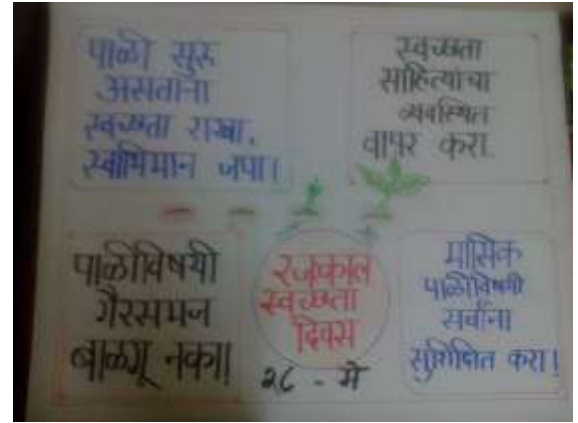 पाळी सुरु
असताना
स्वच्छता राखा,
स्वाभिमान जपा।
स्वच्छता
साहित्याचा
व्यवस्थित
वापर करा.
पाळीविषयी
गैरसमज
बाळगू नका।
रजकाल
स्वच्छता
दिवस
२८ - मे
मासिक
पाळीविषयी
सर्वांना
सुशिक्षित करा!